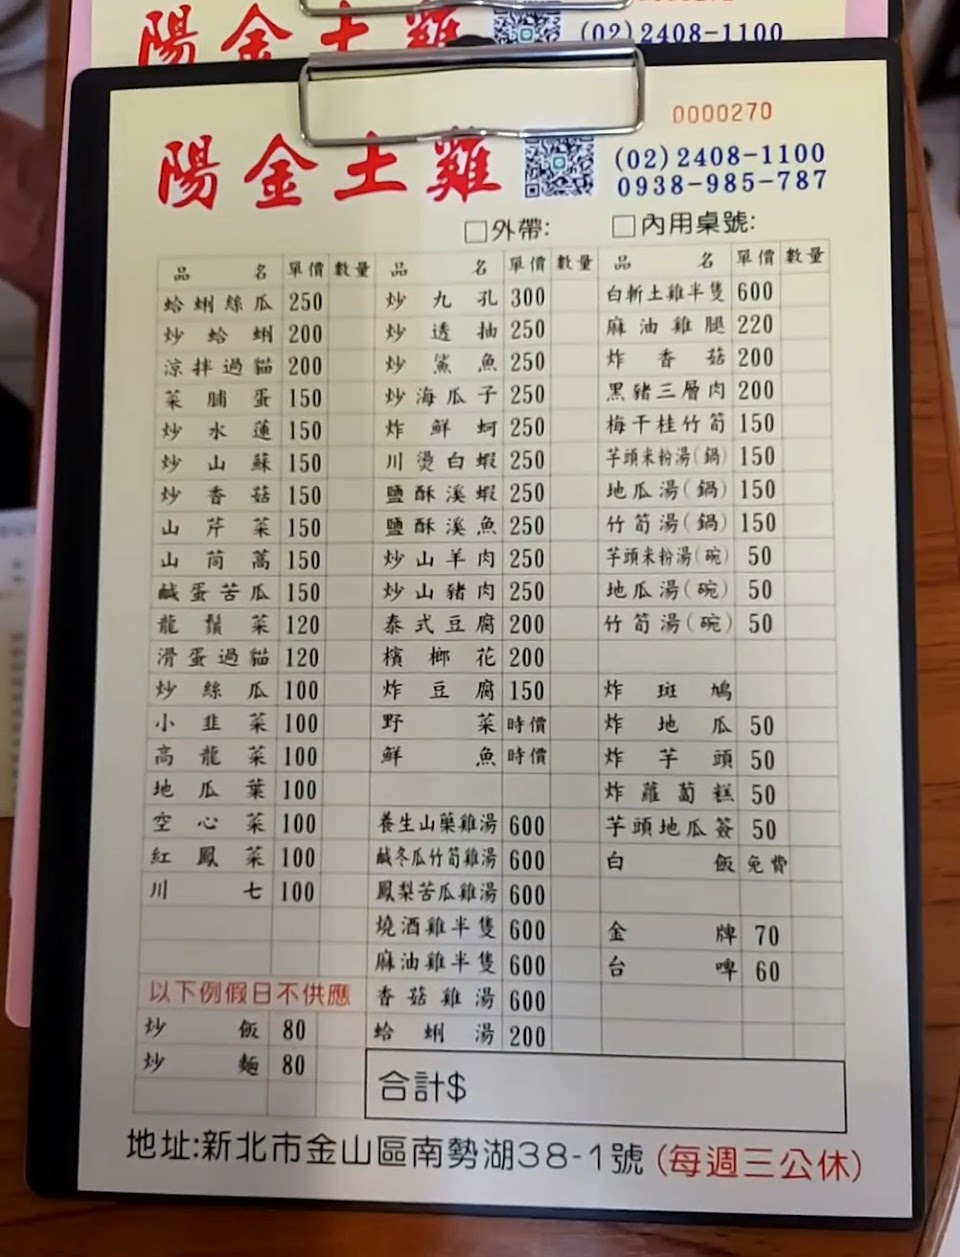 陽金土雞
(02)2408-1100
0000270
陽金土雞
(02)2408-1100
0938-985-787
□外帶: □內用桌號:
品名 單價 數量 品名 單價 數量 品名 單價 數量
蛤蜊絲瓜 250 炒九孔 300 白斬土雞半隻 600
炒蛤蜊 200 炒透抽 250 麻油雞腿 220
涼拌過貓 200 炒鯊魚 250 炸香菇 200
菜脯蛋 150 炒海瓜子 250 黑豬三層肉 200
炒水蓮 150 炸鮮蚵 250 梅干桂竹筍 150
炒山蘇 150 川燙白蝦 250 芋頭米粉湯(鍋) 150
炒香菇 150 鹽酥溪蝦 250 地瓜湯(鍋) 150
山芹菜 150 鹽酥溪魚 250 竹筍湯(鍋) 150
山茼蒿 150 炒山羊肉 250 芋頭米粉湯(碗) 50
鹹蛋苦瓜 150 炒山豬肉 250 地瓜湯(碗) 50
龍鬚菜 120 泰式豆腐 200 竹筍湯(碗) 50
滑蛋過貓 120 檳榔花 200
炒絲瓜 100 炸豆腐 150 炸斑鳩
小韭菜 100 野菜 時價 炸地瓜 50
高龍菜 100 鮮魚 時價 炸芋頭 50
地瓜葉 100 炸蘿蔔糕 50
空心菜 100 養生山藥雞湯 600 芋頭地瓜簽 50
紅鳳菜 100 鹹冬瓜竹筍雞湯 600 白飯 免費
川七 100 鳳梨苦瓜雞湯 600
燒酒雞半隻 600 金牌 70
麻油雞半隻 600 台啤 60
以下例假日不供應 香菇雞湯 600
炒飯 80 蛤蜊湯 200
炒麵 80
合計$
地址:新北市金山區南勢湖38-1號 (每週三公休)